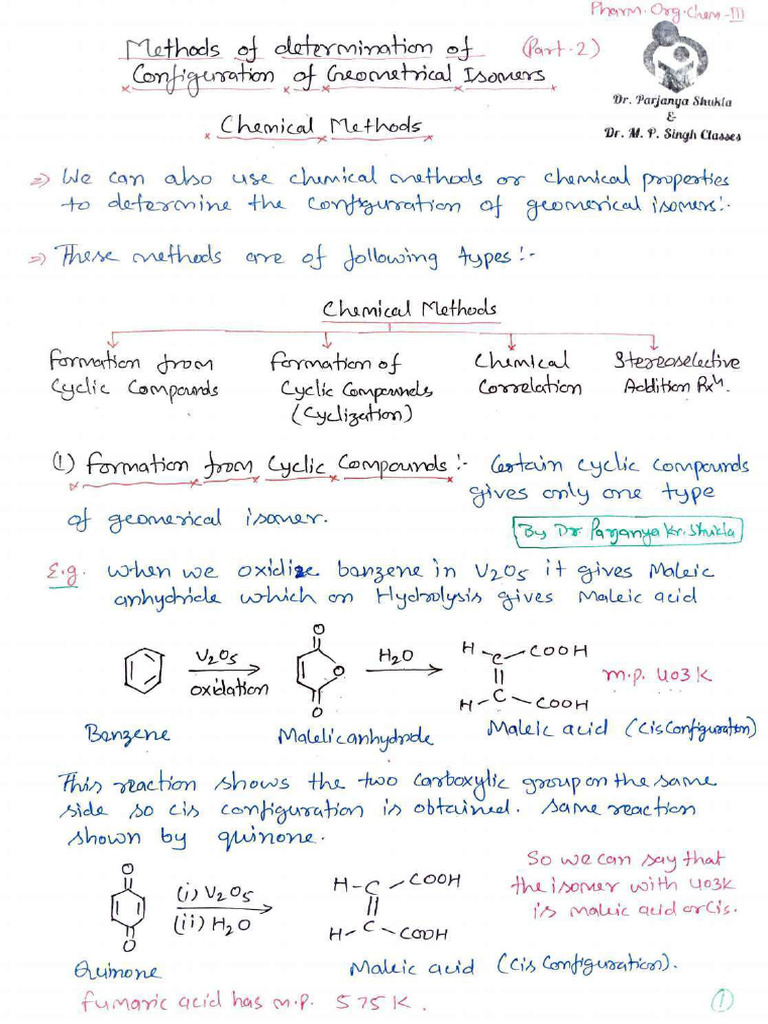 Pharm. Org. Chem-III
Methods of determination of (Part-2)
Configuration of Geometrical Isomers
Dr. Parjanya Shukla
&
Dr. M. P. Singh Classes
Chemical Methods
=> We can also use chemical methods or chemical properties
to determine the configuration of geomerical isomers:-
=> These methods are of following types:-
Chemical Methods
Formation from Cyclic Compounds
Formation of Cyclic Compounds (Cyclization)
Chemical Correlation
Stereoselective Addition Rxn.
(1) Formation from Cyclic Compounds:- Certain cyclic compounds
gives only one type
of geomerical isomer.
By Dr Parjanya Kr. Shukla
E.g. When we oxidize banzene in V2O5 it gives Maleic
anhydride which on Hydrolysis gives Maleic acid
V2O5
oxidation
O
O
O
H2O
H-C-COOH
||
H-C-COOH
m.p. 403K
Banzene
Malelicanhydride
Maleic acid (Cis Configuration)
This reaction shows the two carboxylic group on the same
side so cis configuration is obtained. Same reaction
shown by quinone.
O
O
(i) V2O5
(ii) H2O
H-C-COOH
||
H-C-COOH
So we can say that
the isomer with 403K
is maleic acid or cis.
Quinone
Maleic acid (Cis Configuration).
fumaric acid has m.p. 575K.
1